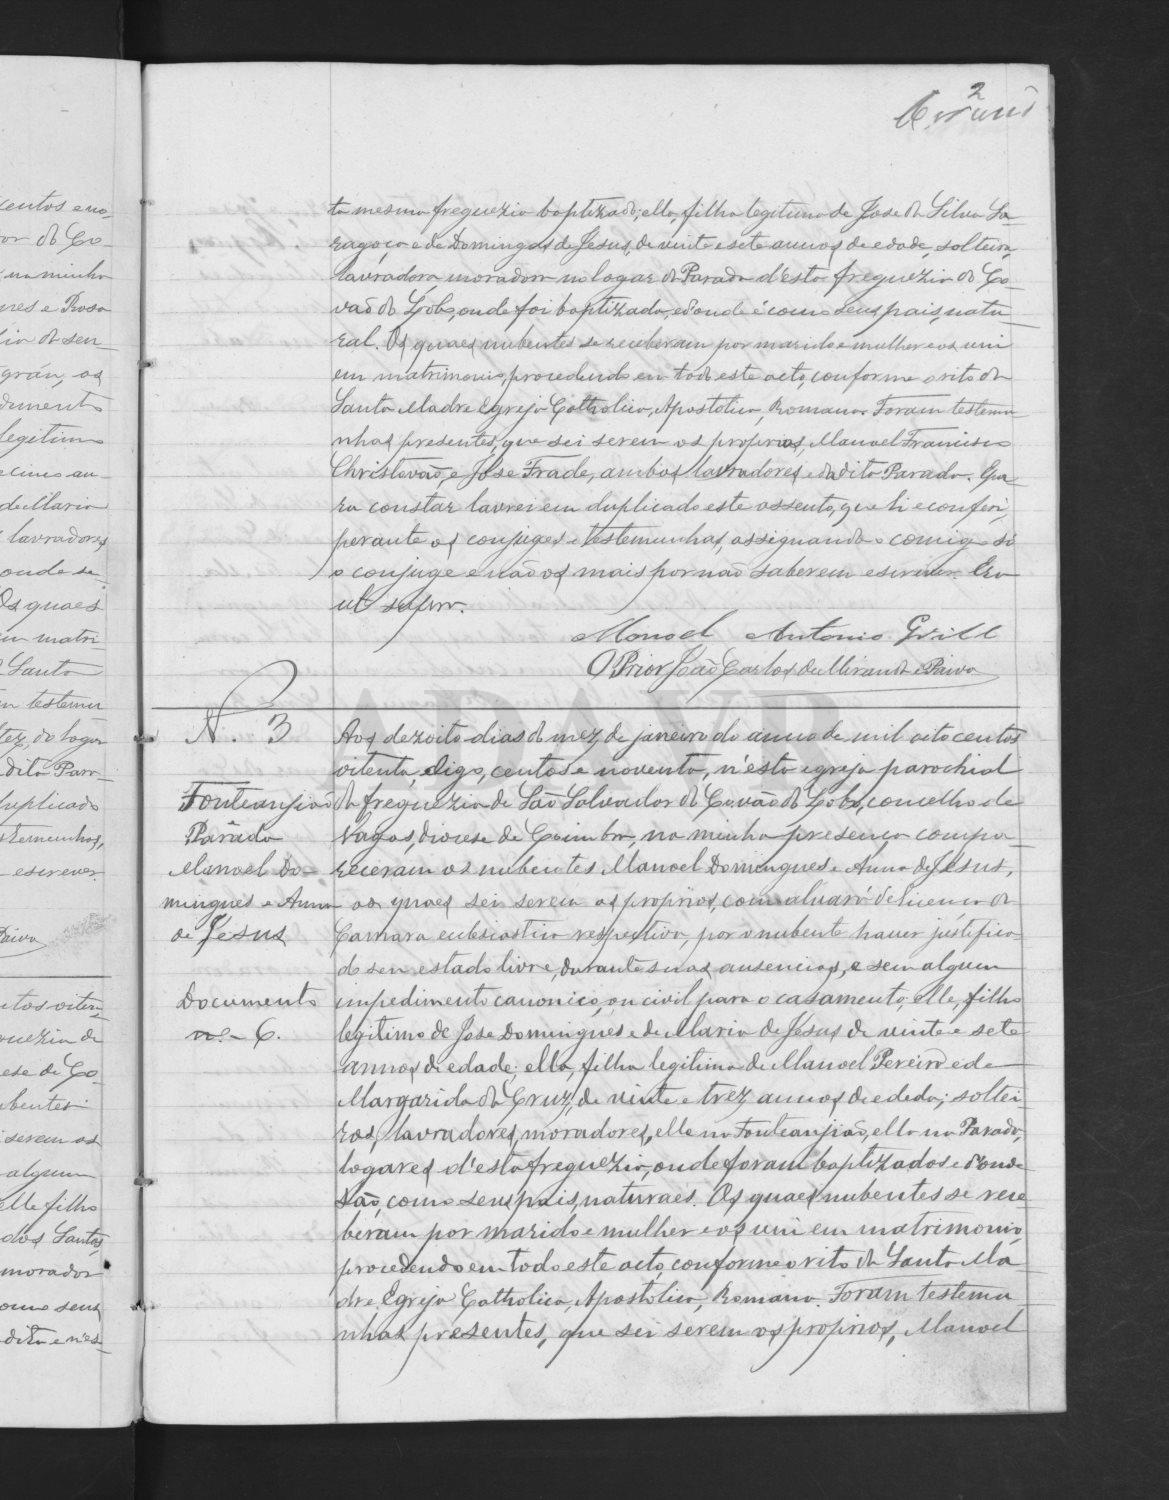 2
centos e no-
na minha
nes e Rosa
grán, os
legitimo
de Maria
lavradores
onde se
Os quaes
em matri
Santa
testemu
dito Para-
duplicado
temunhas,
escrever.
Paiva
quezia de
ese de Co-
bentes
serem os
algum
elle filho
dos Santos,
morador
como seus
ta mesma freguezia baptizado; ella, filha legitima de Jose da Silva Sa-
ragoça e de Domingas de Jesus, de vinte e sete annos de edade, solteira,
lavradora, moradora no logar da Parada d'esta freguezia do Co-
vaõ do Lobo, onde foi baptizada, e d'onde é como seus pais, natu-
ral. Os quaes nubentes se receberam por marido e mulher e os uni
em matrimonio, procedendo em todo este acto, conforme o rito da
Santa Madre Egreja Catholica, Apostolica, Romana. Foram testemu-
nhas presentes, que sei serem os proprios, Manoel Francisco
Christovaõ, e Jose Frade, ambos lavradores, e da dita Parada. E pa-
ra constar lavrei em duplicado este assento, que li e conferi,
perante os conjuges e testemunhas, assignando comigo só
o conjuge e naõ os mais por naõ saberem escrever. Era
ut supra.
Manoel Antonio Grill
O Prior Joaõ Carlos de Miranda e Paiva
ADAVR
N. 3
Fonteanjiaõ
Parada
Manoel Do-
mingues e Anna
de Jesus
Documento
n.º - 6.
Aos dezoito dias do mez de janeiro do anno de mil oito centos
oitenta, digo, centos e noventa, n'esta egreja parochial
da freguezia de Saõ Salvador do Covaõ do Lobo, concelho de
Vagos, diocese de Coimbra, na minha presença compa-
receram os nubentes Manoel Domingues e Anna de Jesus,
os quaes sei serem os proprios, com alvará de licença da
Camara ecclesiastica respectiva, por o nubente haver justifica-
do seu estado livre, durante suas ausencias, e sem algum
impedimento canonico, ou civil para o casamento; elle, filho
legitimo de Jose Domingues e de Maria de Jesus de vinte e sete
annos de edade; ella, filha legitima de Manoel Pereira e de
Margarida da Cruz, de vinte e trez annos de edade; soltei-
ros, lavradores, moradores, elle na Fonteanjiaõ, ella na Parada,
logares d'esta freguezia, onde foram baptizados e d'onde
saõ, como seus pais, naturaes. Os quaes nubentes se rece-
beram por marido e mulher e os uni em matrimonio,
procedendo em todo este acto, conforme o rito da Santa Ma-
dre Egreja Catholica, Apostolica, Romana. Foram testemu-
nhas presentes, que sei serem os proprios, Manoel